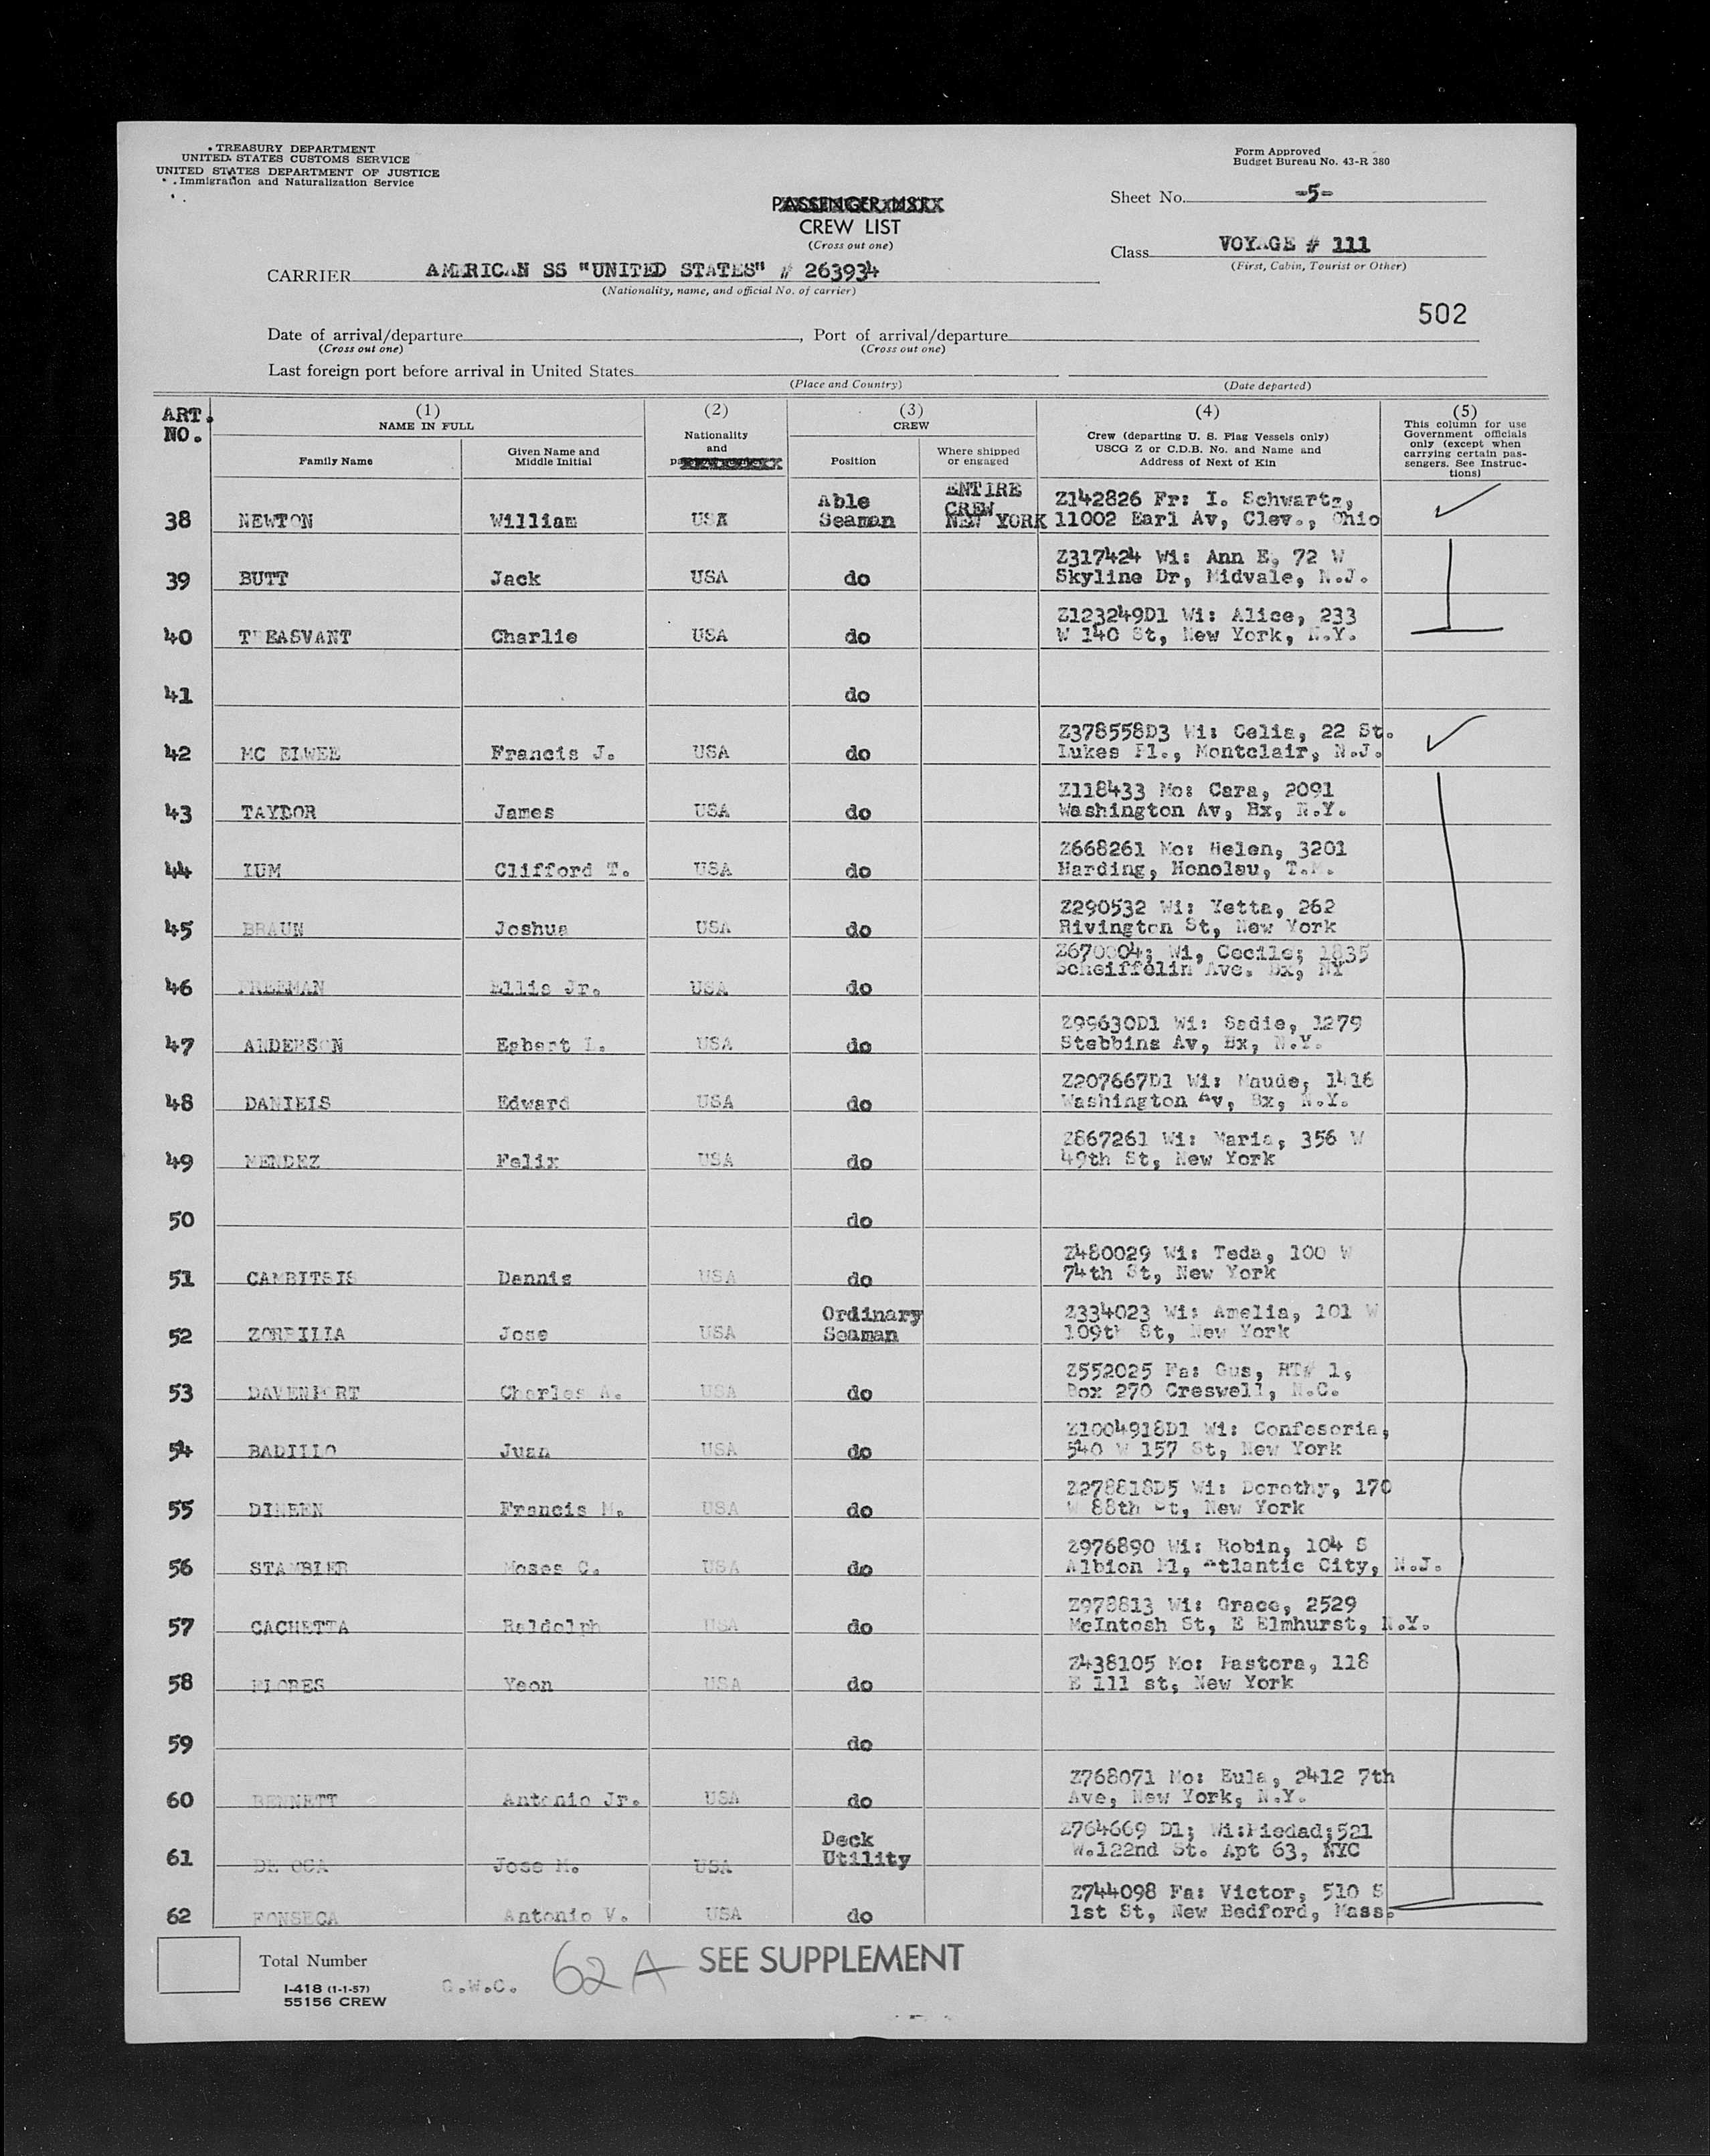 TREASURY DEPARTMENT
UNITED STATES CUSTOMS SERVICE
UNITED STATES DEPARTMENT OF JUSTICE
Immigration and Naturalization Service
Form Approved
Budget Bureau No. 43-R 380
Sheet No. -5-
CREW LIST
(Cross out one)
Class VOYAGE # 111
(First, Cabin, Tourist or Other)
CARRIER AMERICAN SS "UNITED STATES" # 263934
(Nationality, name, and official No. of carrier)
502
Date of arrival/departure, Port of arrival/departure
(Cross out one) (Cross out one)
Last foreign port before arrival in United States
(Place and Country) (Date departed)
ART. NO.
(1) NAME IN FULL
Family Name
Given Name and Middle Initial
(2) Nationality and
(3) CREW
Position
Where shipped or engaged
(4)
Crew (departing U. S. Flag Vessels only)
USCG Z or C.D.B. No. and Name and
Address of Next of Kin
(5)
This column for use
Government officials
only (except when
carrying certain pas-
sengers. See Instruc-
tions)
38 NEWTON William USA Able Seaman ENTIRE CREW NEW YORK Z142826 Fr: I. Schwartz,
11002 Earl Av, Clev., Ohio
39 BUTT Jack USA do Z317424 Wi: Ann E, 72 W
Skyline Dr, Midvale, N.J.
40 TREASVANT Charlie USA do Z123249D1 Wi: Alice, 233
W 140 St, New York, N.Y.
41 do
42 MC ELWEE Francis J. USA do Z378558D3 Wi: Celia, 22 St.
Lukes Pl., Montclair, N.J.
43 TAYLOR James USA do Z118433 Mo: Cara, 2091
Washington Av, Bx, N.Y.
44 LUM Clifford T. USA do Z668261 Mo: Helen, 3201
Harding, Honolau, T.H.
45 BRAUN Joshua USA do Z290532 Wi: Yetta, 262
Rivington St, New York
46 FREEMAN Ellis Jr. USA do Wi, Cecile; 1835
Scheiffelin Ave. Bx, NY
47 ANDERSON Egbert L. USA do Z99630D1 Wi: Sadie, 1279
Stebbins Av, Bx, N.Y.
48 DANIELS Edward USA do Z207667D1 Wi: Maude, 1416
Washington Av, Bx, N.Y.
49 MENDEZ Felix USA do Z867261 Wi: Maria, 356 W
49th St, New York
50 do
51 CAMBITSIS Dennis USA do Z480029 Wi: Teda, 100 W
74th St, New York
52 ZORRILLA Jose USA Ordinary Seaman Z334023 Wi: Amelia, 101 W
109th St, New York
53 DAVENPORT Charles A. USA do Z552025 Fa: Gus, RT# 1,
Box 270 Creswell, N.C.
54 BADILLO Juan USA do Z1004918D1 Wi: Confesoria,
540 W 157 St, New York
55 DINEEN Francis M. USA do Z278818D5 Wi: Dorothy, 170
W 88th St, New York
56 STAMBLER Moses C. USA do Z976890 Wi: Robin, 104 S
Albion Pl, Atlantic City, N.J.
57 CACHETTA Raldolph USA do Z978813 Wi: Grace, 2529
McIntosh St, E Elmhurst, N.Y.
58 FLORES Yeon USA do Z438105 Mo: Pastora, 118
E 111 st, New York
59 do
60 BENNETT Antonio Jr. USA do Z768071 Mo: Eula, 2412 7th
Ave, New York, N.Y.
61 DE OCA Jose M. USA Deck Utility Z764669 D1; Wi:Piedad;521
W.122nd St. Apt 63, NYC
62 FONSECA Antonio V. USA do Z744098 Fa: Victor, 510 S
1st St, New Bedford, Mass.
Total Number
I-418 (1-1-57)
55156 CREW
G.W.C.
62A SEE SUPPLEMENT